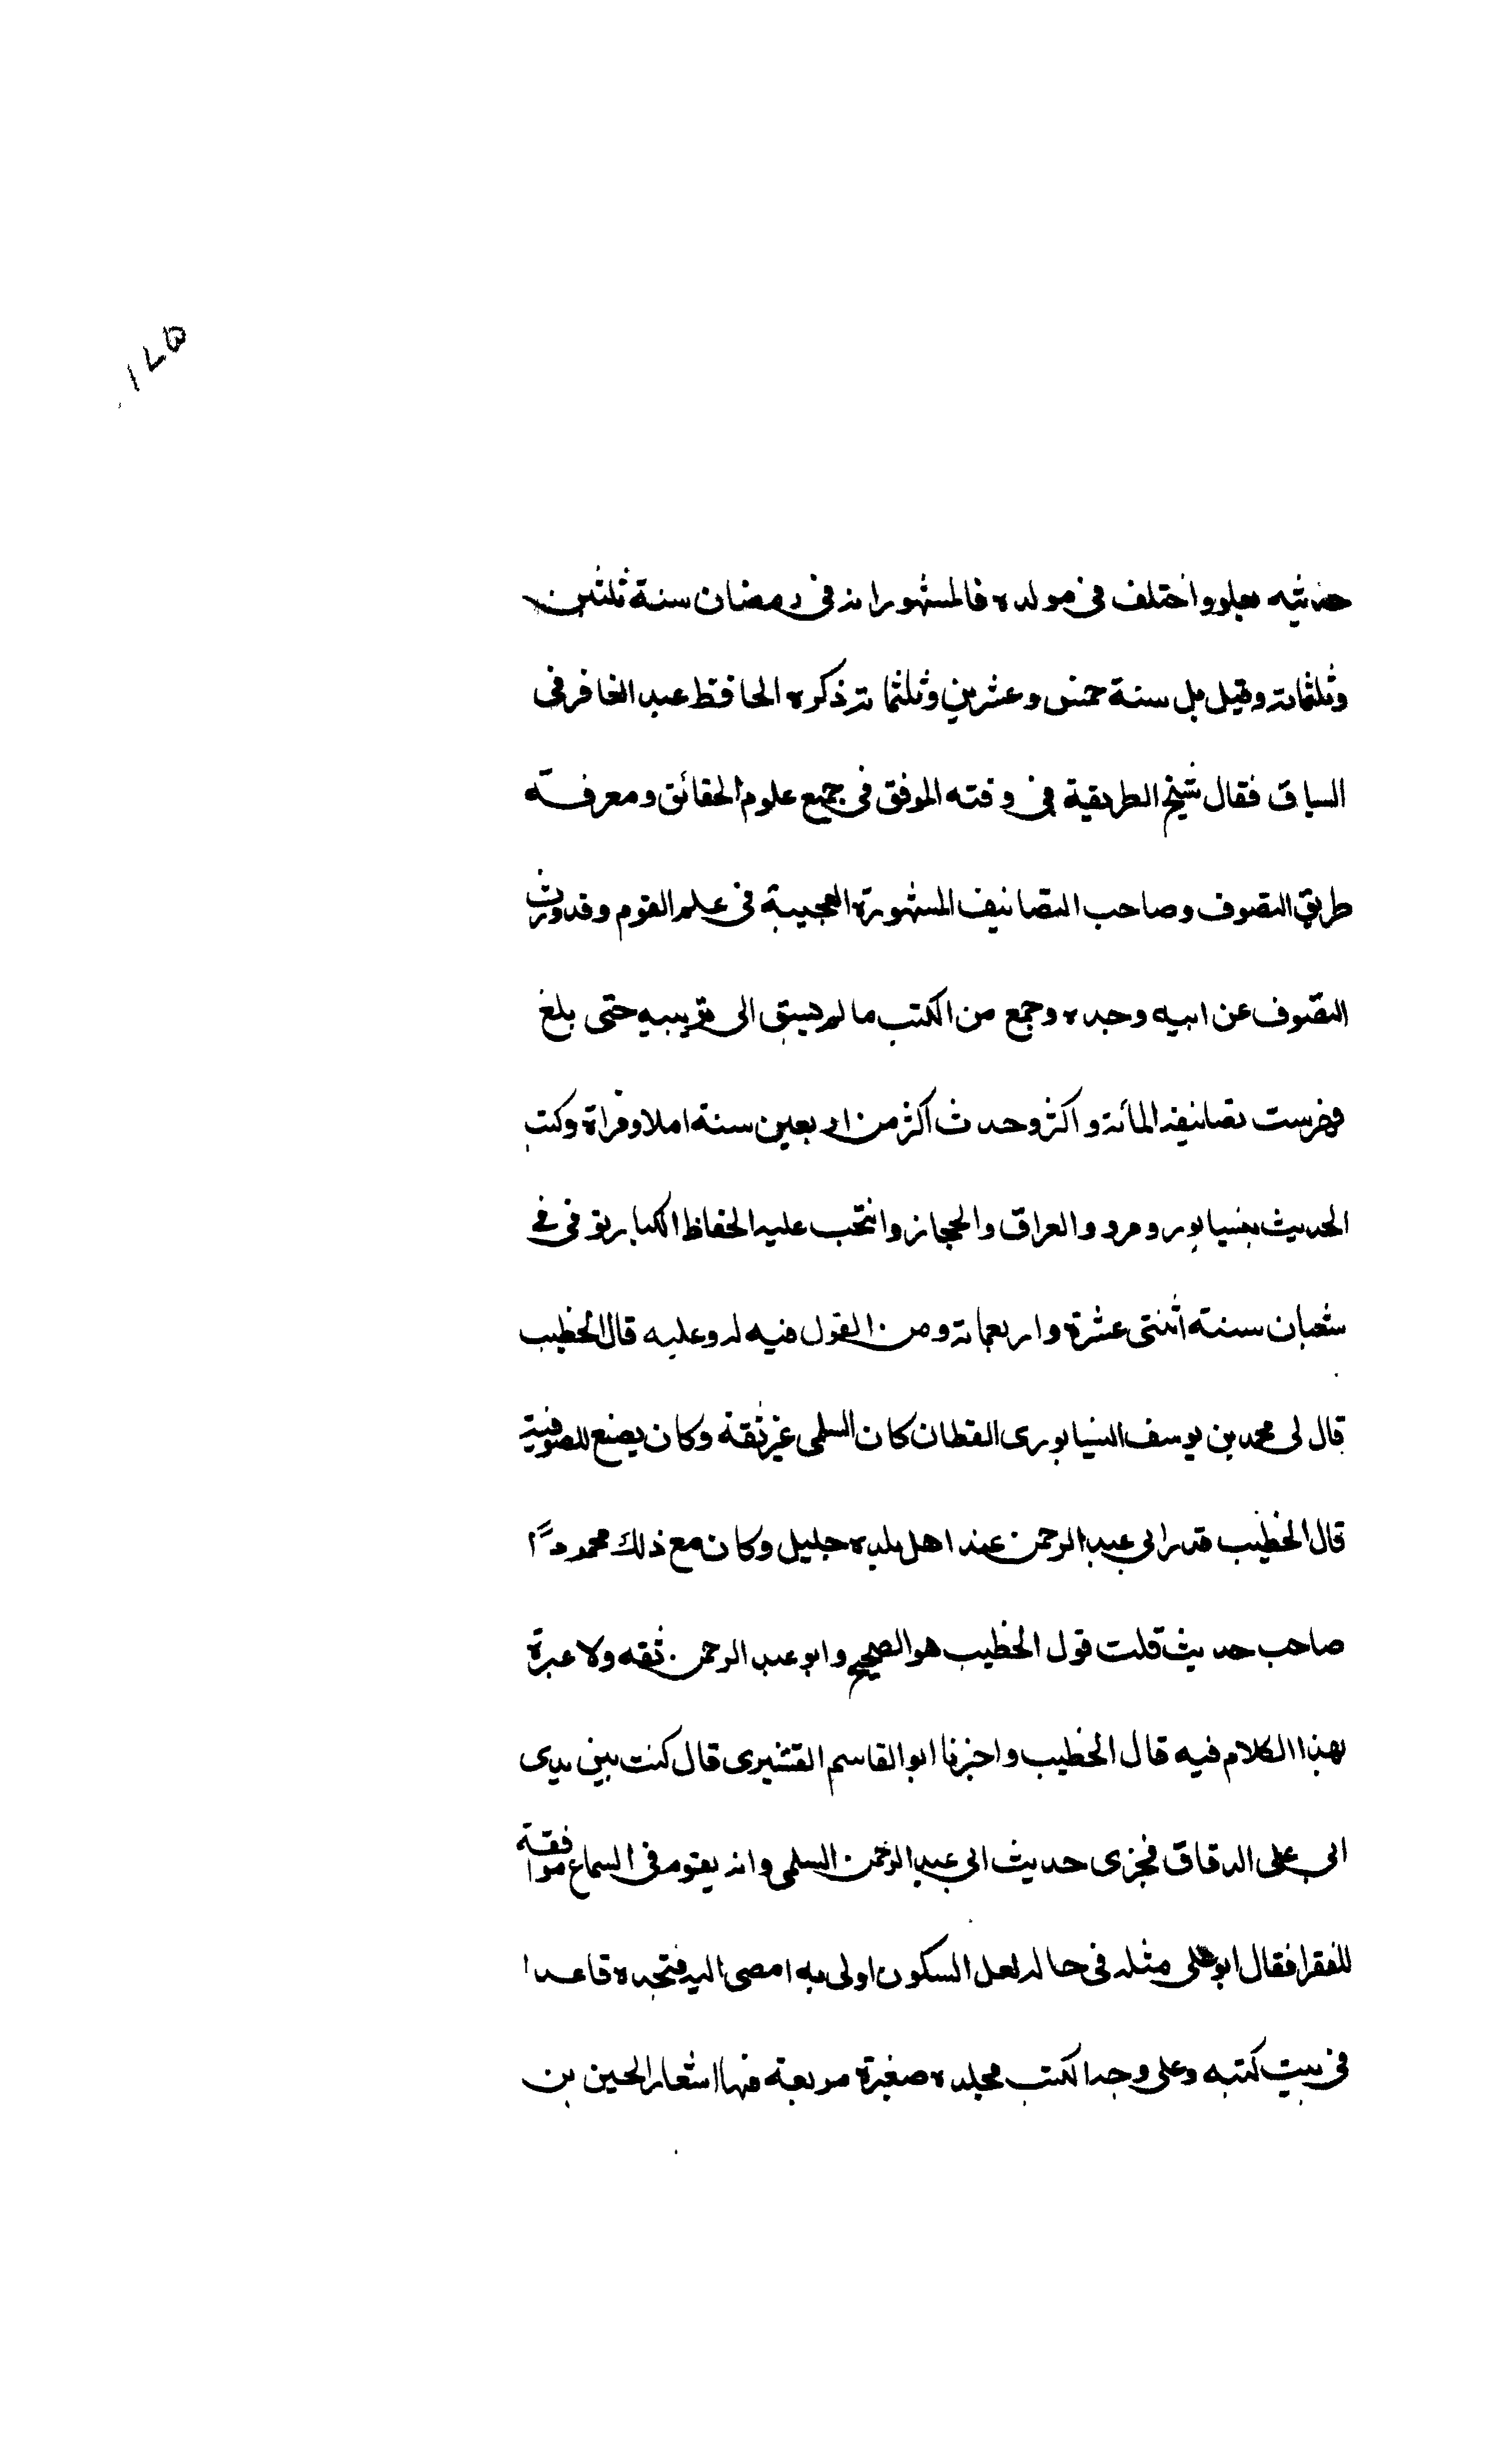 ١٧٥
حديثه بعلو واختلف في مولده فالمشهور انه في رمضان سنة ثلثين
وثلثمائة وقيل بل سنة خمس وعشرين وثلثمائة ذكره الحافظ عبد الغافر في
السياق فقال شيخ الطريقة في وقته الموفق في جميع علوم الحقائق ومعرفة
طريق التصوف وصاحب التصانيف المشهورة العجيبة في علم القوم وقد ورث
التصوف عن ابيه وجده وجمع من الكتب ما لم يسبق الى ترتيبه حتى بلغ
فهرست تصانيفه المائة واكثر وحدث اكثر من اربعين سنة املا وقراة وكتب
الحديث بنيسابور ومرو والعراق والحجاز وانتخب عليه الحفاظ الكبار توفي في
شعبان سنة اثنتي عشرة واربعمائة ومن القول فيه له وعليه قال الخطيب
قال لي محمد بن يوسف النيسابوري القطان كان السلمي غير ثقة وكان يضع للصوفية
قال الخطيب قدر ابي عبد الرحمن عند اهل بلده جليل وكان مع ذلك محمودًا
صاحب حديث قلت قول الخطيب هو الصحيح وابو عبد الرحمن ثقه ولا عبرة
بهذا الكلام فيه قال الخطيب واخبرنا ابو القاسم القشيري قال كنت بين يدي
ابي على الدقاق فجرى حديث ابي عبد الرحمن السلمي وانه يقوم في السماع موافقة
للفقرا فقال ابو علي مثله في حاله لعل السكون اولى به امضى اليه فتجده قاعدا
في بيت كتبه وعلى وجه الكتب مجلده صغيرة مربعة فيها اشعار الحسين بن